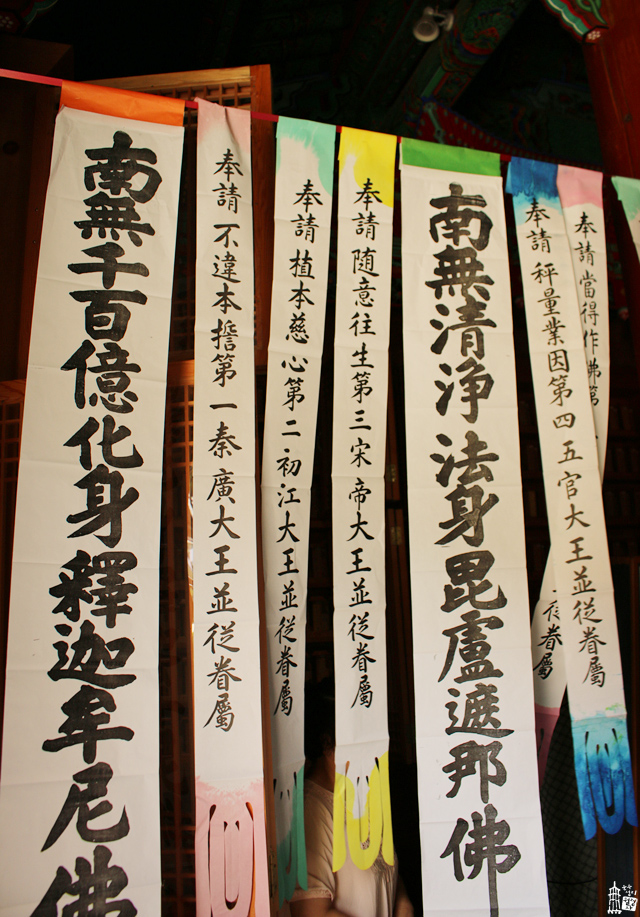 南無千百億化身釋迦牟尼佛
奉請不違本擔第一秦廣大王並從眷屬
奉請植本慈心第二初江大王並從眷屬
奉請随意往生第三宋帝大王並從眷屬
南無清淨法身毘盧遮那佛
奉請秤量業因第四五官大王並從眷屬
奉請當得作佛第
從眷屬